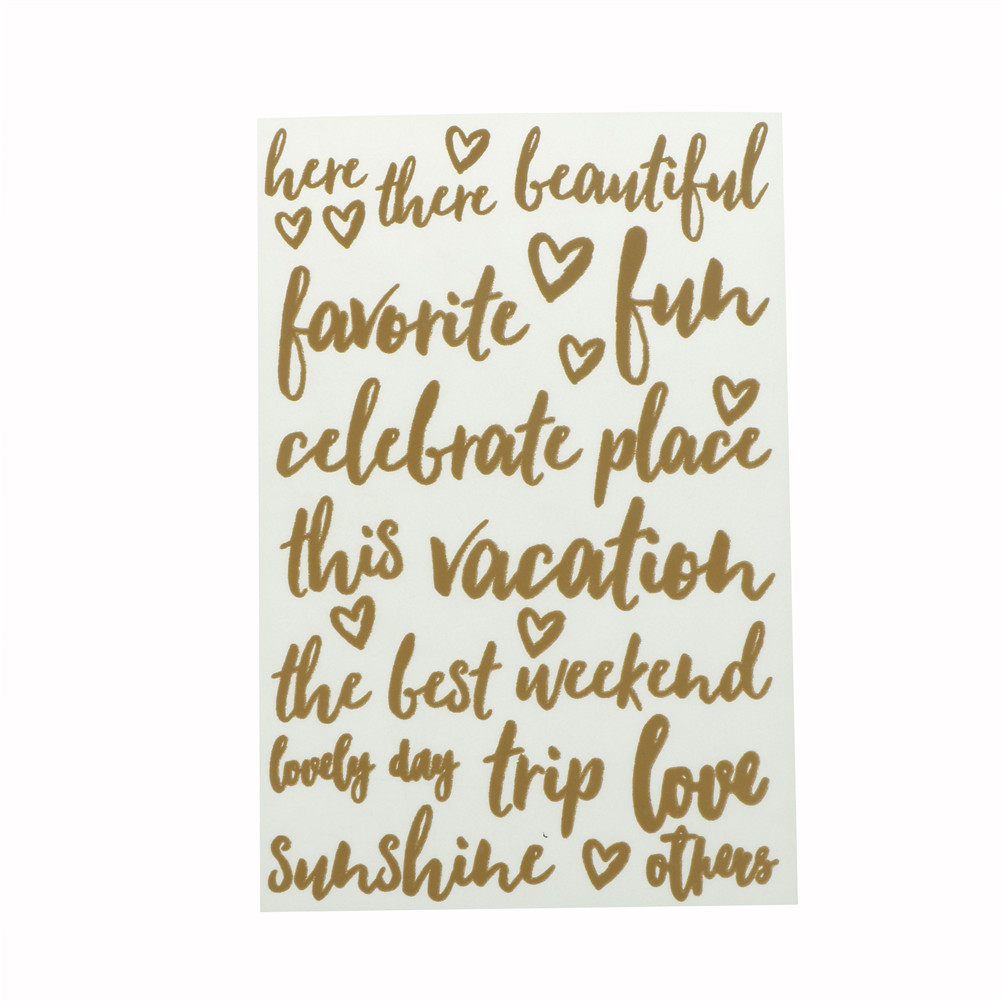 here there beautiful
favorite fun
celebrate place
this vacation
the best weekend
lovely day trip love
sunshine others